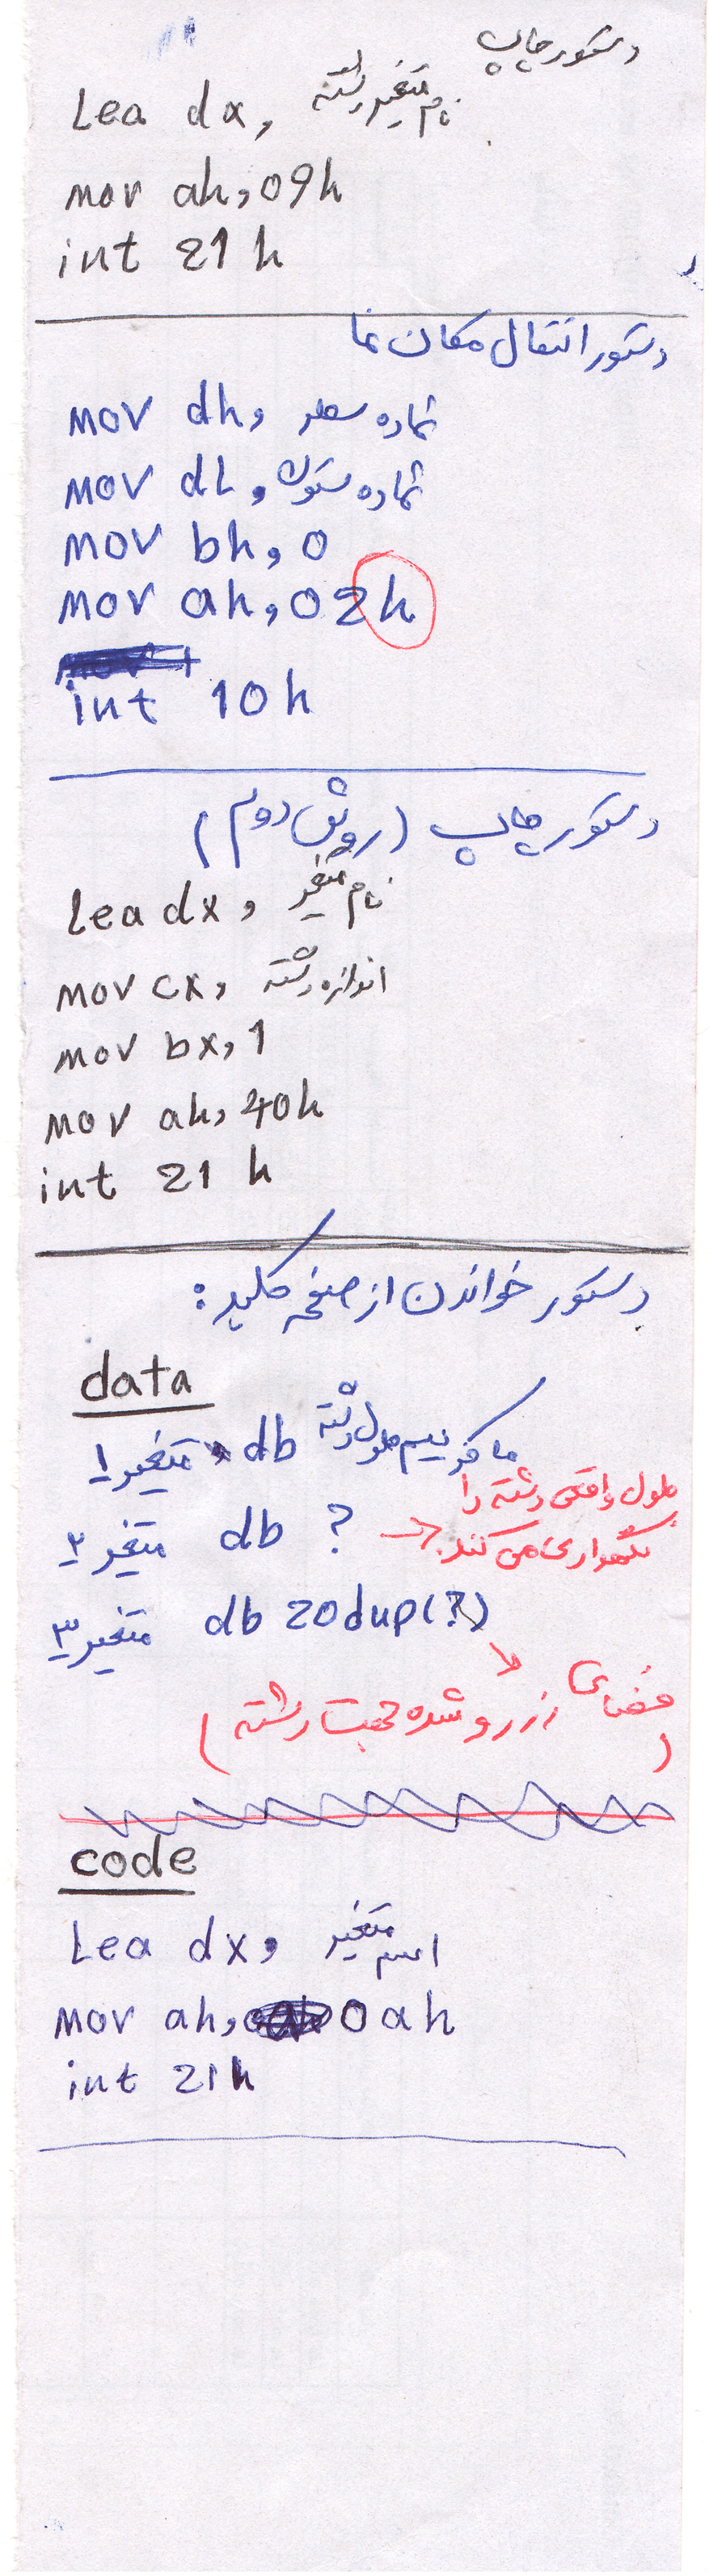 دستور چاپ
Lea dx, نام متغیر رشته
mov ah, 09h
int 21h
دستور انتقال مکان نما
mov dh, شماره سطر
mov dL, شماره ستون
mov bh, 0
mov ah, 02h
int 10h
دستور چاپ (روش دوم)
Lea dx, نام متغیر
mov cx, اندازه رشته
mov bx, 1
mov ah, 40h
int 21h
دستور خواندن از صفحه کلید:
data
متغیر ۱ db ماکزیمم طول رشته
متغیر ۲ db ? → طول واقعی رشته را
نگهداری می کند.
متغیر ۳ db 20dup(?)
(فضای رزرو شده جهت رشته)
code
Lea dx, اسم متغیر
mov ah, 0ah
int 21h